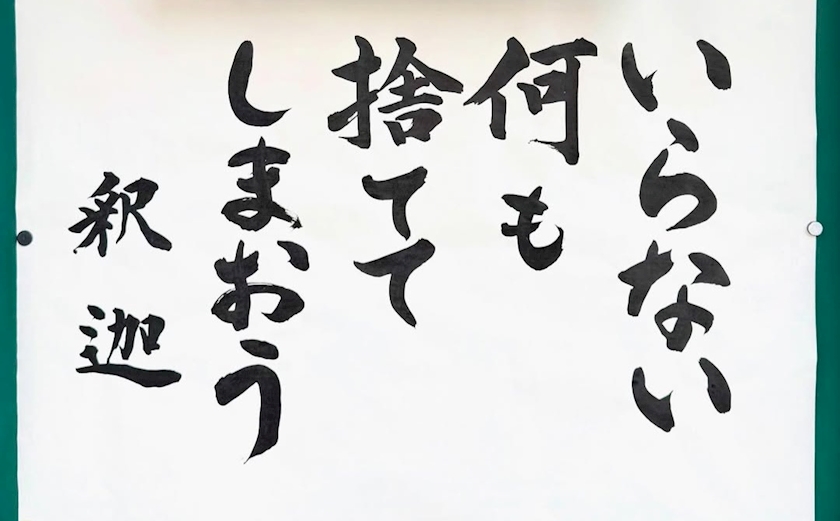 いらない
何も
捨てて
しまおう
釈迦